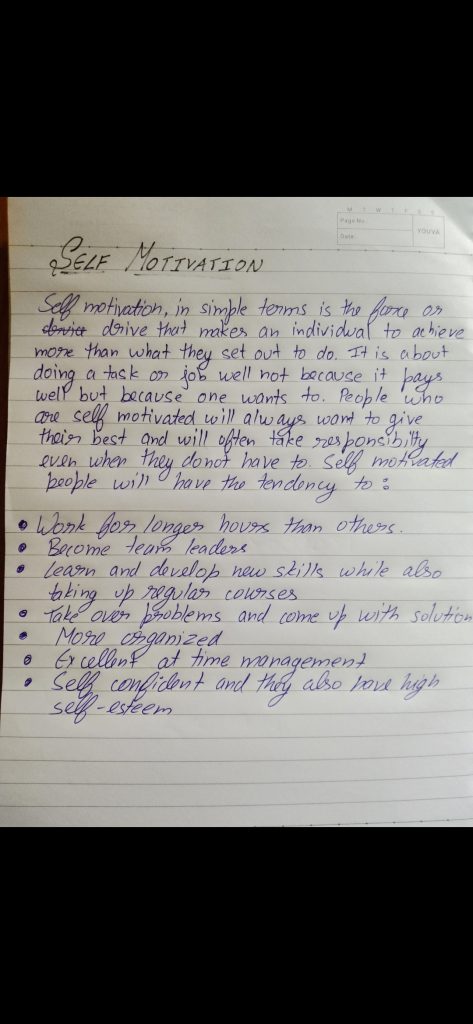 M T W T F S S
Page No.:
Date:
YOUVA
SELF MOTIVATION
Self motivation, in simple terms is the force or
drive that makes an individual to achieve
more than what they set out to do. It is about
doing a task or job well not because it pays
well but because one wants to. People who
are self motivated will always want to give
their best and will often take responsibilty
even when they donot have to. Self motivated
people will have the tendency to :
• Work for longer hours than others.
• Become team leaders
• Learn and develop new skills while also
taking up regular courses
• Take over problems and come up with solution
• More organized
• Excellent at time management
• Self confident and they also have high
self-esteem